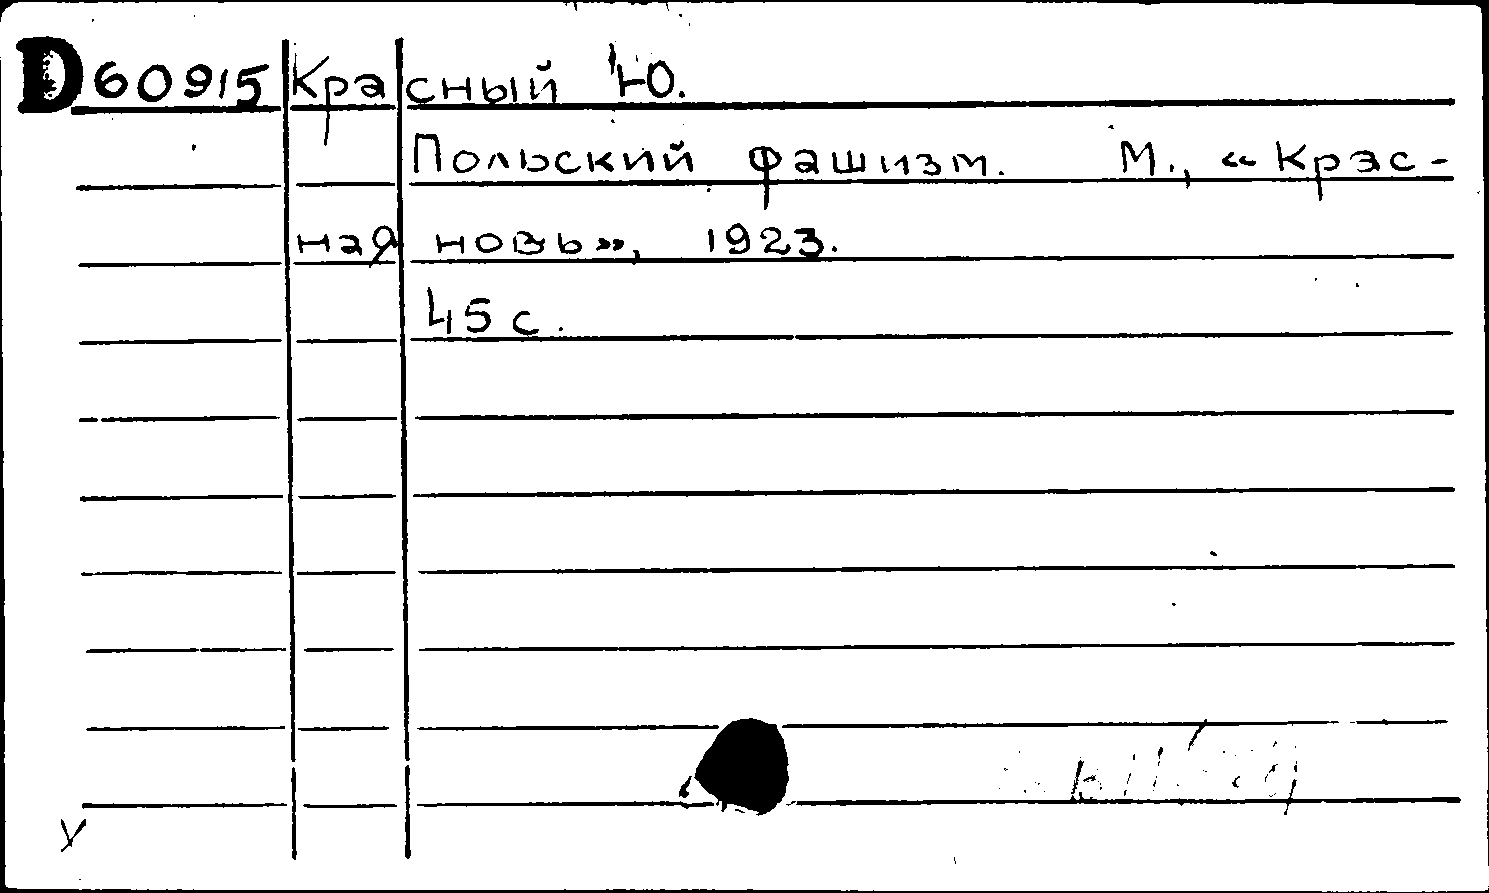 D60915 Красный Ю.
Польский фашизм. М., «Крас-
ная новь», 1923.
45 с.